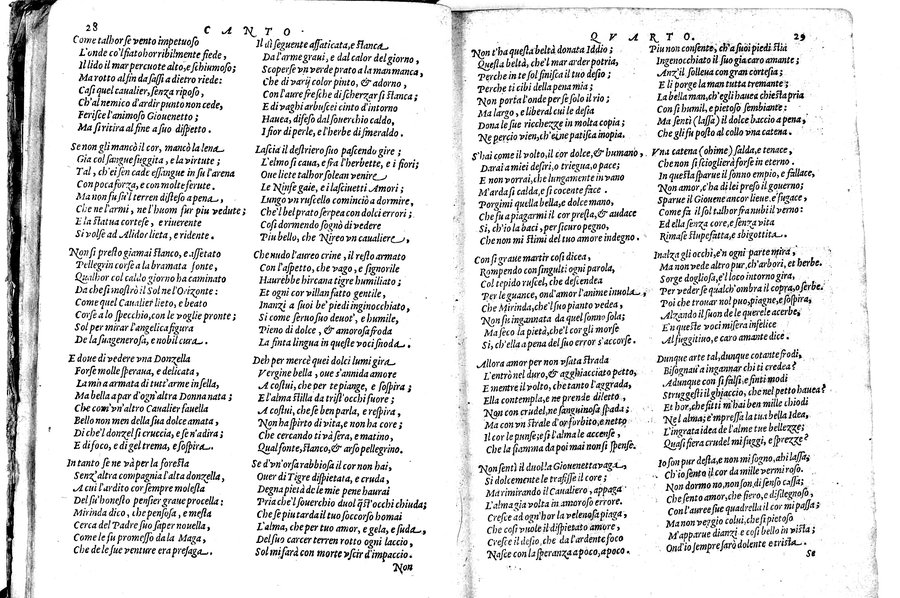 28
CANTO
Come talhor se vento impetuoso
L'onde co'l fiato horribilmente fiede,
Il lido il mar percuote alto, e schiumoso;
Ma rotto al fin da sassi a dietro riede:
Casi quel caualier, senza riposo,
Ch'al nemico d'ardir punto non cede,
Ferisce l'animoso Giouenetto;
Ma si ritira al fine a suo dispetto.
Se non gli mancò il cor, mancò la lena
Gia col sangue fuggita, e la virtute;
Tal, ch'ei sen cade essangue in su l'arena
Con poca forza, e con molte ferute.
Ma non fu sù'l terren disteso a pena,
Che ne l'armi, ne l'huom fur piu vedute;
E la statua cortese, e riuerente
Si volse ad Alidor lieta, e ridente.
Non sì presto giamai stanco, e assetato
Pellegrin corse a la bramata fonte,
Qualhor col caldo giorno ha caminato
Da che si mostrò il Sol ne l'Orizonte:
Come quel Caualier lieto, e beato
Corse a lo specchio, con le voglie pronte;
Sol per mirar l'angelica figura
De la sua generosa, e nobil cura.
E doue di vedere vna Donzella
Forse molle speraua, e delicata,
La mirò armata di tutt'arme in sella,
Ma bella a par d'ogn'altra Donna nata;
Che com'vn'altro Caualier fauella
Bello non men della sua dolce amata,
Di che'l donzel si cruccia, e se n'adira;
E di foco, e di gel trema, e sospira.
In tanto se ne và per la foresta
Senz'altra compagnia l'alta donzella,
A cui l'ardito cor sempre molesta
Del su' honesto pensier graue procella:
Mirinda dico, che pensosa, e mesta
Cerca del Padre suo saper nouella,
Come le fu promesso da la Maga,
Che de le sue venture era presaga.
Il dì seguente affaticata, e stanca
Da l'arme graui, e dal calor del giorno,
Scoperse vn verde prato a la man manca,
Che di varij color pinto, & adorno,
Con l'aure fresche di scherzar si stanca;
E di vaghi arbuscei cinto d'intorno
Hauea, difeso dal souerchio caldo,
I fior di perle, e l'herbe di smeraldo.
Lascia il destriero suo pascendo gire;
L'elmo si caua, e fra l'herbette, e i fiori;
Que liete talhor solean venire
Le Ninfe gaie, e i lasciuetti Amori;
Lungo vn ruscello cominciò a dormire,
Che'l bel prato serpea con dolci errori;
Cosi dormendo sognò di vedere
Piu bello, che Nireo vn caualiere,
Che nudo l'aureo crine, il resto armato
Con l'aspetto, che vago, e signorile
Haurebbe hircana tigre humiliato;
Et ogni cor villan fatto gentile,
Inanzi a suoi be' piedi inginocchiato,
Si come seruo suo deuot', e humile,
Pieno di dolce, & amorosa froda
La finta lingua in queste voci snoda.
Deh per mercè quei dolci lumi gira
Vergine bella, oue s'annida amore
A costui, che per te piange, e sospira;
E l'alma stilla da trist'occhi fuore;
A costui, che se ben parla, e respira,
Non ha spirto di vita, e non ha core;
Che cercando ti vàsera, e matino,
Qual fonte, stanco, & arso pellegrino.
Se d'vn'orsa rabbiosa il cor non hai,
Ouer di Tigre dispietata, e cruda,
Degna pietà de le mie pene haurai
Pria che'l souerchio duol q̃st'occhi chiuda;
Che se piu tarda il tuo soccorso homai
L'alma, che per tuo amor, e gela, e suda,
Del suo carcer terren rotto ogni laccio,
Sol misarà con morte vscir d'impaccio.
Non
QVARTO.
29
Non t'ha questa beltà donata Iddio;
Questa beltà, che'l mar arder potria,
Perche in te sol finisca il tuo desio;
Perche ti cibi della pena mia;
Non porta l'onde per se solo il rio;
Ma largo, e liberal cui le desia
Dona le sue ricchezze in molta copia;
Ne perciò vien, ch'ei ne patisca inopia.
S'hai come il volto, il cor dolce, & humano,
Darai a miei desiri, o triegua, o pace;
E non vorrai, che lungamente in vano
M'arda sì calda, e sì cocente face.
Porgimi quella bella, e dolce mano,
Che fu a piagarmi il cor presta, & audace
Si, ch'io la baci, per sicuro pegno,
Che non mi stimi del tuo amore indegno.
Con sì graue martir cosi dicea,
Rompendo con singulti ogni parola,
Col tepido ruscel, che descendea
Per le guance, ond'amor l'anime inuola,
Che Mirinda, che'l suo pianto vedea,
Non fu ingannata da quel sonno sola;
Ma seco la pietà, che'l cor gli morse
Si, ch'ella a pena del suo error s'accorse.
Allora amor per non vsata strada
L'entrò nel duro, & agghiacciato petto,
E mentre il volto, che tanto l'aggrada,
Ella contempla, e ne prende diletto,
Non con crudel, ne sanguinosa spada;
Ma con vn strale d'or forbito, e netto
Il cor le punse; e sì l'alma le accense,
Che la fiamma da poi mai non si spense.
Non sentì il duol la Giouenetta vaga
Si dolcemente le trafisse il core;
Ma rimirando il Caualiero, appaga
L'alma già volta in amoroso errore.
Cresce ad ogn'hor la velenosa piaga,
Che così vuole il dispietato amore,
Cresce il desio, che da l'ardente foco
Nasce con la speranza a poco, a poco.
Piu non consente, ch'a suoi piedi stia
Ingenocchiato il suo gia caro amante;
Anz'il solleua con gran cortesia;
E li porge la man tutta tremante;
La bella man, ch'egli hauea chiesta pria
Con sì humil, e pietoso sembiante:
Ma sentì (lassa) il dolce baccio a pena,
Che gli fu posto al collo vna catena.
Vna catena (ohime) salda, e tenace,
Che non si scioglierà forse in eterno.
In questa sparue il sonno empio, e fallace,
Non amor, c'ha di lei preso il gouerno;
Sparue il Giouene ancor lieue e fugace,
Come fa il sol talhor fra nubi il verno:
Ed ella senza core, e senza vita
Rimase stupefatta, e sbigottita.
Inalza gli occhi, e'n ogni parte mira,
Ma non vede altro pur, ch'arbori, et herbe.
Sorge dogliosa, e'l loco intorno gira,
Per veder se qualch'ombra il copra, o serbe.
Poi che trouar nol puo, piagne, e sospira,
Alzando il suon de le querele acerbe;
E n queste voci misera infelice
Al fuggitiuo, e caro amante dice.
Dunque arte tal, dunque cotante frodi,
Bisognau' a ingannar chi ti credea?
Adunque con sì falsi, e finti modi
Struggesti il ghiaccio, che nel petto hauea?
Et hor, che fitti m'hai ben mille chiodi
Ne l'alma; e'mpressa la tua bella Idea,
L'ingrata idea de l'alme tue bellezze;
Quasi fiera crudel mi fuggi, e sprezze?
Io son pur desta, e non mi sogno, ahi lassa;
Ch'io sento il cor da mille vermi roso.
Non dormo no, non son, di senso cassa;
Che sento amor, che fiero, e disdegnoso,
Con l'auree sue quadrella il cor mi passa;
Ma non veggio colui, che sì pietoso
M'apparue dianzi e così bello in vista;
Ond'io sempre sarò dolente e trista.
Se